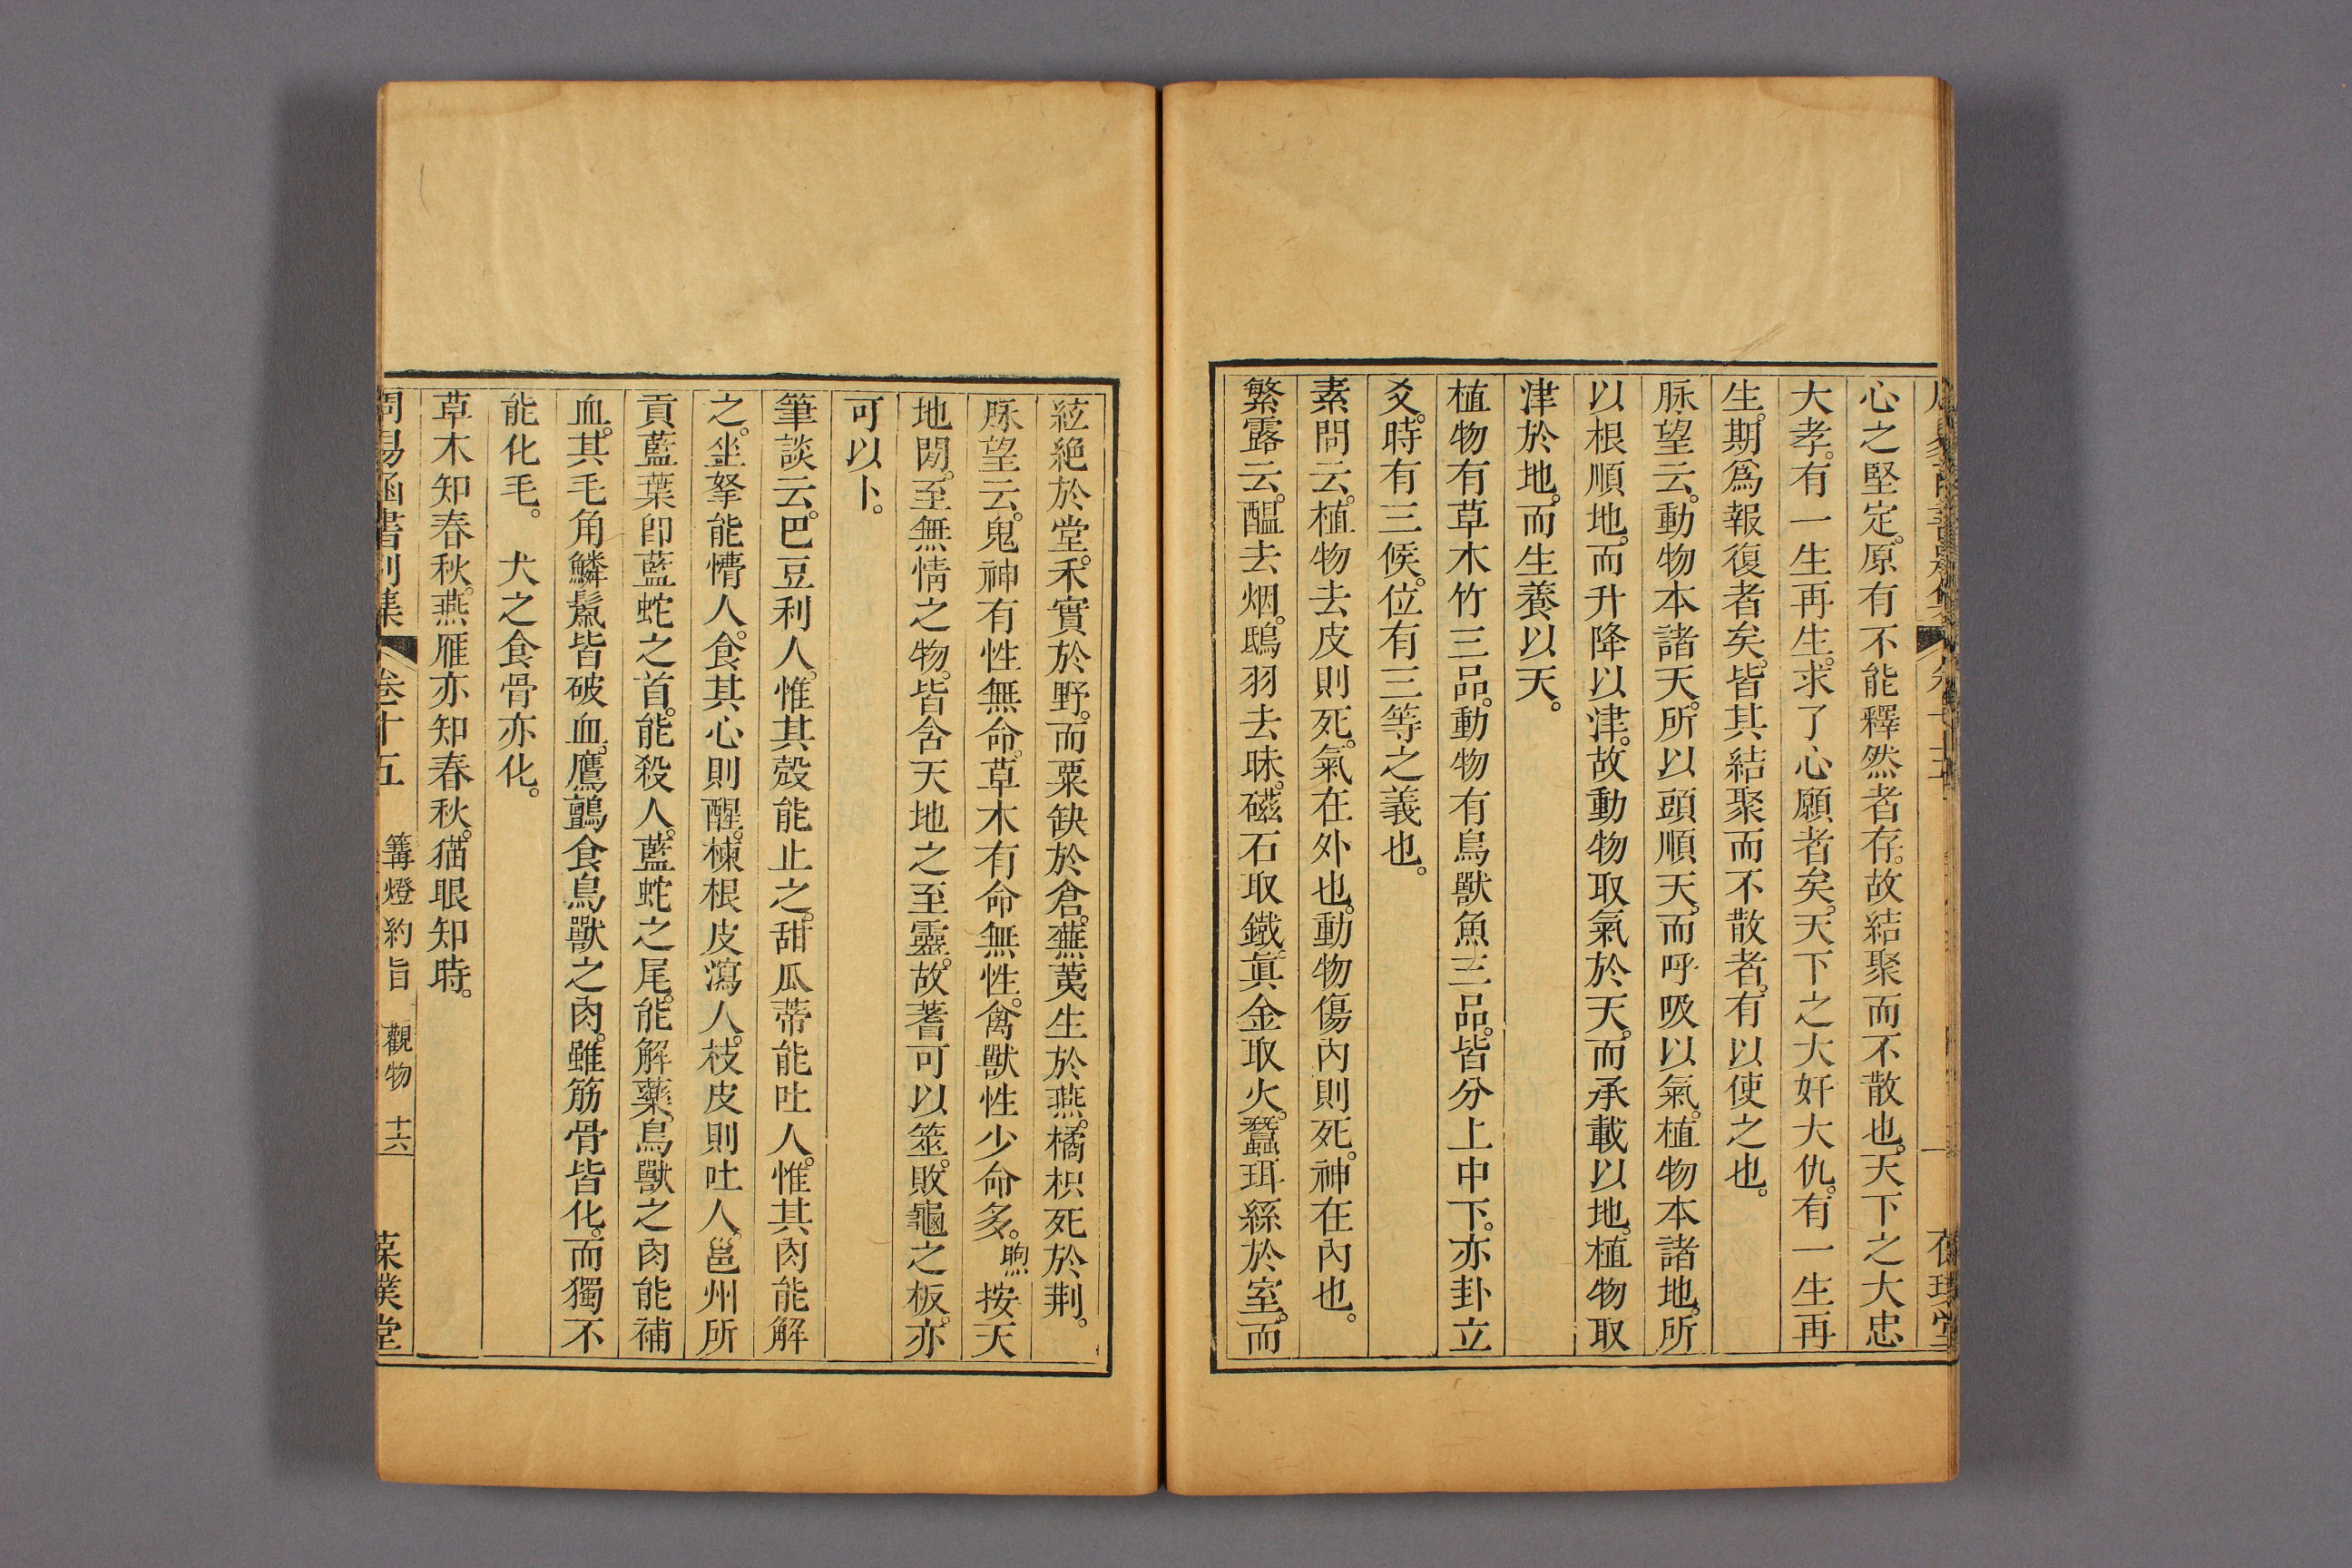 心之堅定。原有不能釋然者存。故結聚而不散也。天下之大忠
大孝。有一生再生。求了心願者矣。天下之大奸大仇。有一生再
生。期爲報復者矣。皆其結聚而不散者。有以使之也。
脉望云。動物本諸天。所以頭順天。而呼吸以氣。植物本諸地。所
以根順地。而升降以津。故動物取氣於天。而承載以地。植物取
津於地。而生養以天。
植物有草木竹三品。動物有鳥獸魚三品。皆分上中下。亦卦立
爻。時有三候。位有三等之義也。
素問云。植物去皮則死。氣在外也。動物傷內則死。神在內也。
繁露云。醞去烟。鴟羽去昧。磁石取鐵。眞金取火。蠶珥絲於室。而
絃絶於堂。禾實於野。而粟缺於倉。蕪荑生於燕。橘枳死於荆。
脉望云。鬼神有性無命。草木有命無性。禽獸性少命多。煦按天
地閒。至無情之物。皆含天地之至靈。故蓍可以筮。敗龜之板。亦
可以卜。
筆談云。巴豆利人。惟其殼能止之。甜瓜蒂能吐人。惟其肉能解
之。坐拏能懵人。食其心則醒。楝根皮瀉人。枝皮則吐人。邕州所
貢藍葉卽藍蛇之首。能殺人。藍蛇之尾。能解藥。鳥獸之肉能補
血。其毛角鱗鬣皆破血。鷹鸇食鳥獸之肉。雖筋骨皆化。而獨不
能化毛。 犬之食骨亦化。
草木知春秋。燕雁亦知春秋。猫眼知時。
周易函書別集 卷十五 篝燈約旨 觀物 十六 葆璞堂